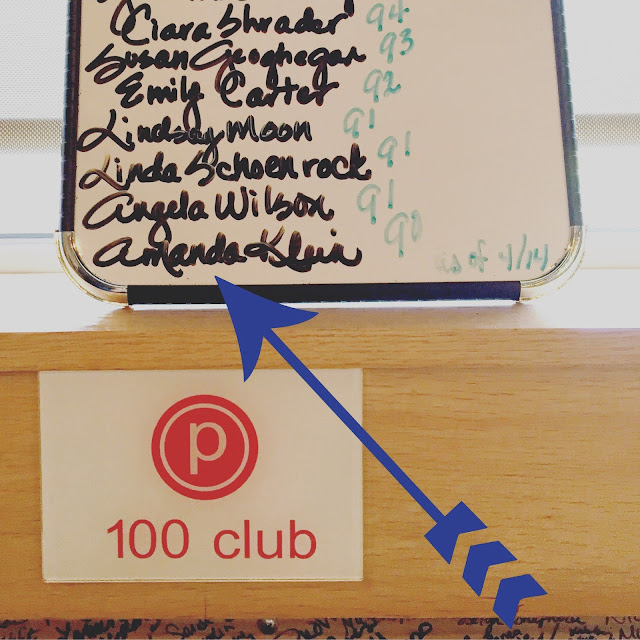 Ciara Shrader 94
Susan Geoghegan 93
Emily Carter 92
Lindsay Moon 91
Linda Schoenrock 91
Angela Wilson 91
Amanda Klein 90
as of 4/14
p
100 club